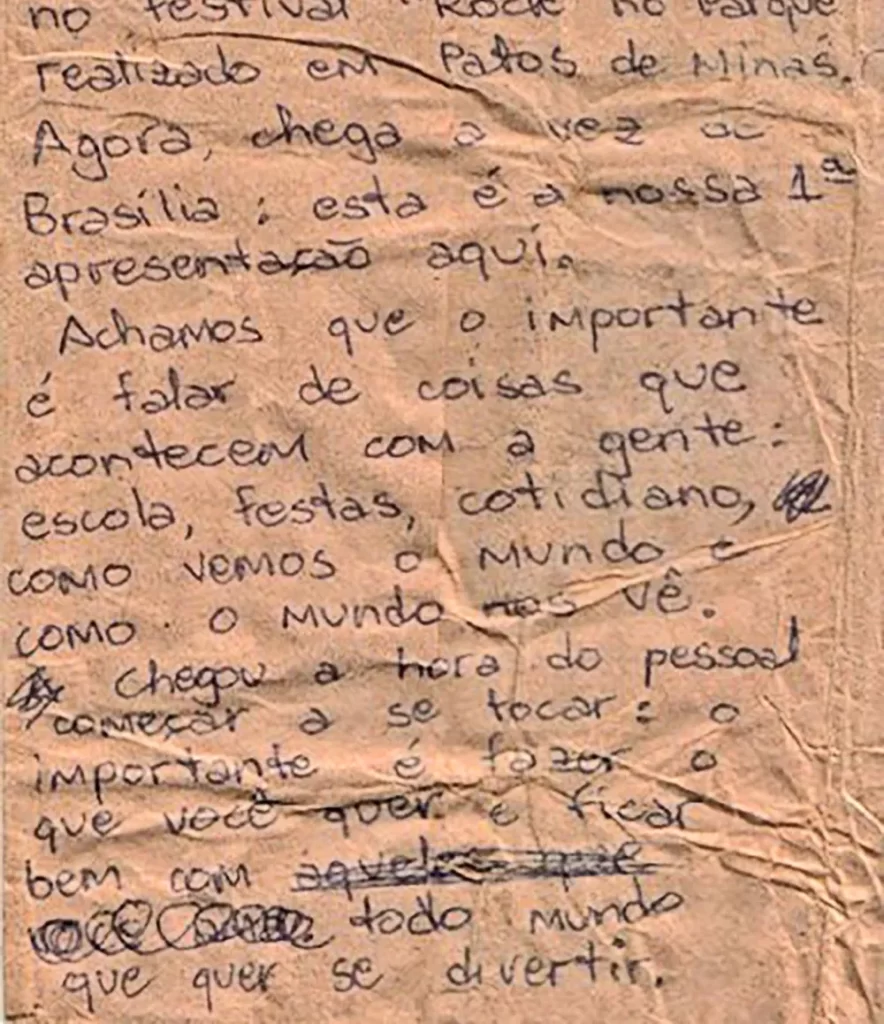 no festival "Rock no Parque
realizado em Patos de Minas.
Agora, chega a vez de
Brasília: esta é a nossa 1ª
apresentação aqui.
Achamos que o importante
é falar de coisas que
acontecem com a gente:
escola, festas, cotidiano,
como vemos o mundo e
como o mundo nos vê.
chegou a hora do pessoal
começar a se tocar: o
importante é fazer o
que você quer e ficar
bem com aqueles que
todo mundo
que quer se divertir.